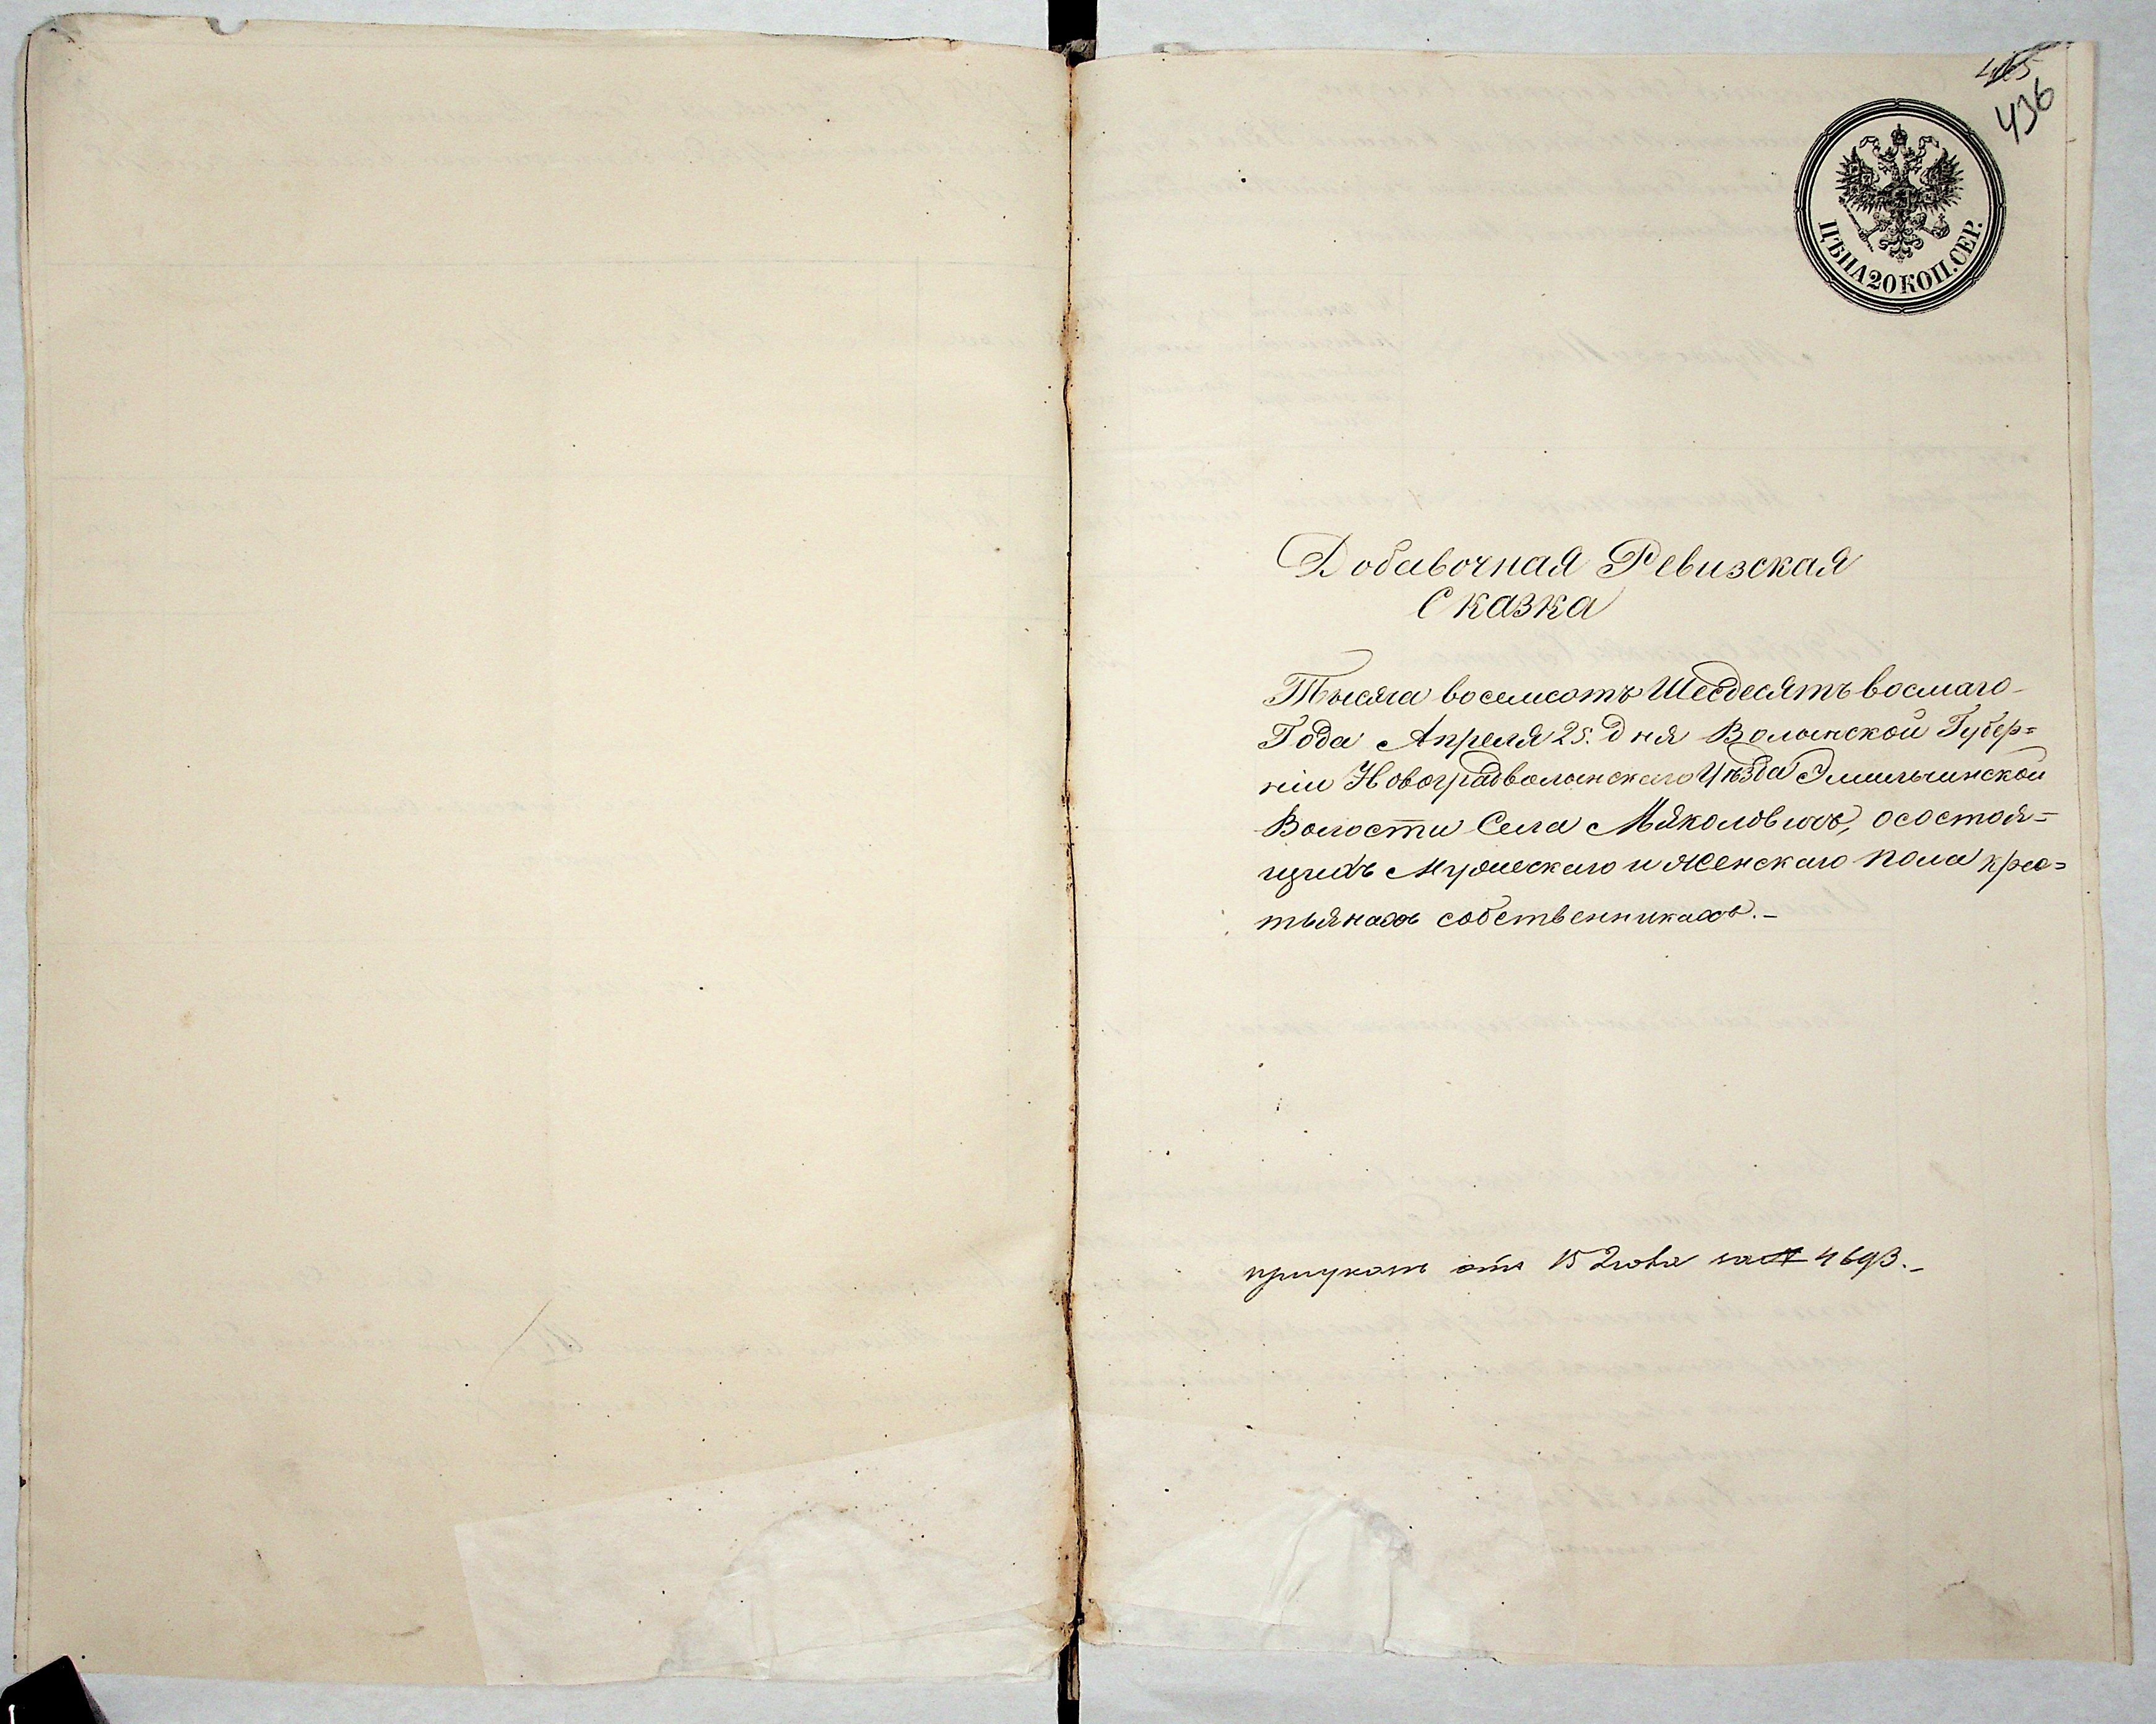 436
ЦѢНА 20 КОП. СЕР.
Добавочная Ревизская
Сказка
Тысяча восемсотъ Шесдесятъ восмаго
Года Апреля 25. дня Волынской Губер=
ніи Новоградволынскаго Уѣзда Эмильчинской
Волости Села Мяколовичъ, осостоя=
щихъ Мужескаго и женскаго пола крес=
тьянахъ собственникахъ.-
отъ 15 Іюня за № 4693.-